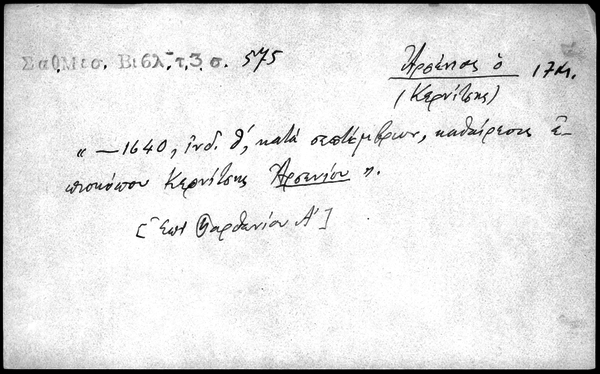 Σαθ. Μεσ. Βιβλ. τ. 3 σ. 575
Ἀρσένιος ὁ 17 αι.
(Κερνίτσης)
" — 1640, ἰνδ. θ', κατὰ σεπτέμβριον, καθαίρεσις ἐ-
πισκόπου Κερνίτσης Ἀρσενίου ".
[Ἐπὶ Παρθενίου Α']